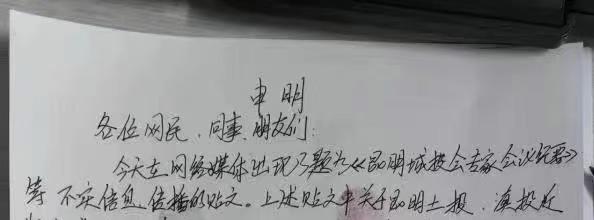 申明
各位网民、同事、朋友们:
今天在网络媒体出现了题为《昆明城投会专家会议纪要》
等不实信息传播的贴文。上述贴文中关于昆明土投、滇投近